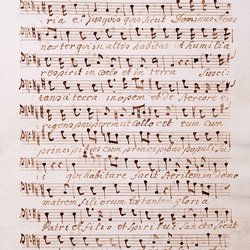 ria e: jus quis sicut Dominus Deus
noster qui in altis habitat & humilia
respicit in coelo et in terra Susci:
tans a terra inopem et de stercore e:
rigens pauperem ut collocet eum cum
principibus cum principibus populi su:
i qui habitare facit sterilem in domo
matrem filiorum laetantem gloria
Patri et Filio et Spiritui sancto sicut